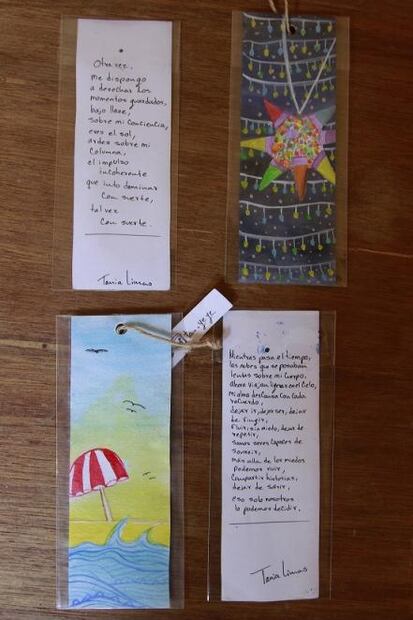 Otra vez,
me dispongo
a derechar los
momentos guardados,
bajo llave,
sobre mi conciencia,
eres el sol,
arder sobre mi
columna,
el impulso
incoherente
que luto dominar
con suerte,
tal vez
con suerte.
Tania Limas
Mientras pasa el tiempo,
las nubes que se posaban
lentas sobre mi cuerpo,
ahora viajan ligeras en el cielo,
mi alma descansa con cada
recuerdo,
dejar ir, dejar ser, dejar
de fingir,
fluir sin miedo, dejar de
repetir,
somos seres capaces de
sonreir,
más alla de los miedos
podemos vivir,
compartir historias,
dejar de sufrir,
eso solo nosotros
lo podemos decidir.
Tania Limas